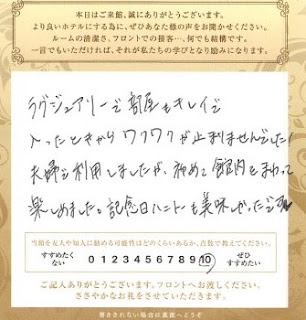 本日はご来館、誠にありがとうございます。
より良いホテルにする為に、ぜひあなた様の声をお聞かせください。
ルームの清潔さ、フロントでの接客…、何でも結構です。
一言でもいただければ、それが私たちの学びとなり励みになります。
ラグジュアリーで部屋もキレイで
入ったときからワクワクが止まりませんでした!
夫婦で利用しましたが、初めて館内をまわって
楽しめました。記念日ハニトーも美味しかったです
当館を友人や知人に勧める可能性はどのくらいあるか、点数で教えてください。
すすめたくない 0 1 2 3 4 5 6 7 8 9 10 ぜひすすめたい
ご記入ありがとうございます。フロントへお渡しください。
ささやかなお礼をさせていただきます。
書ききれない場合は裏面へどうぞ